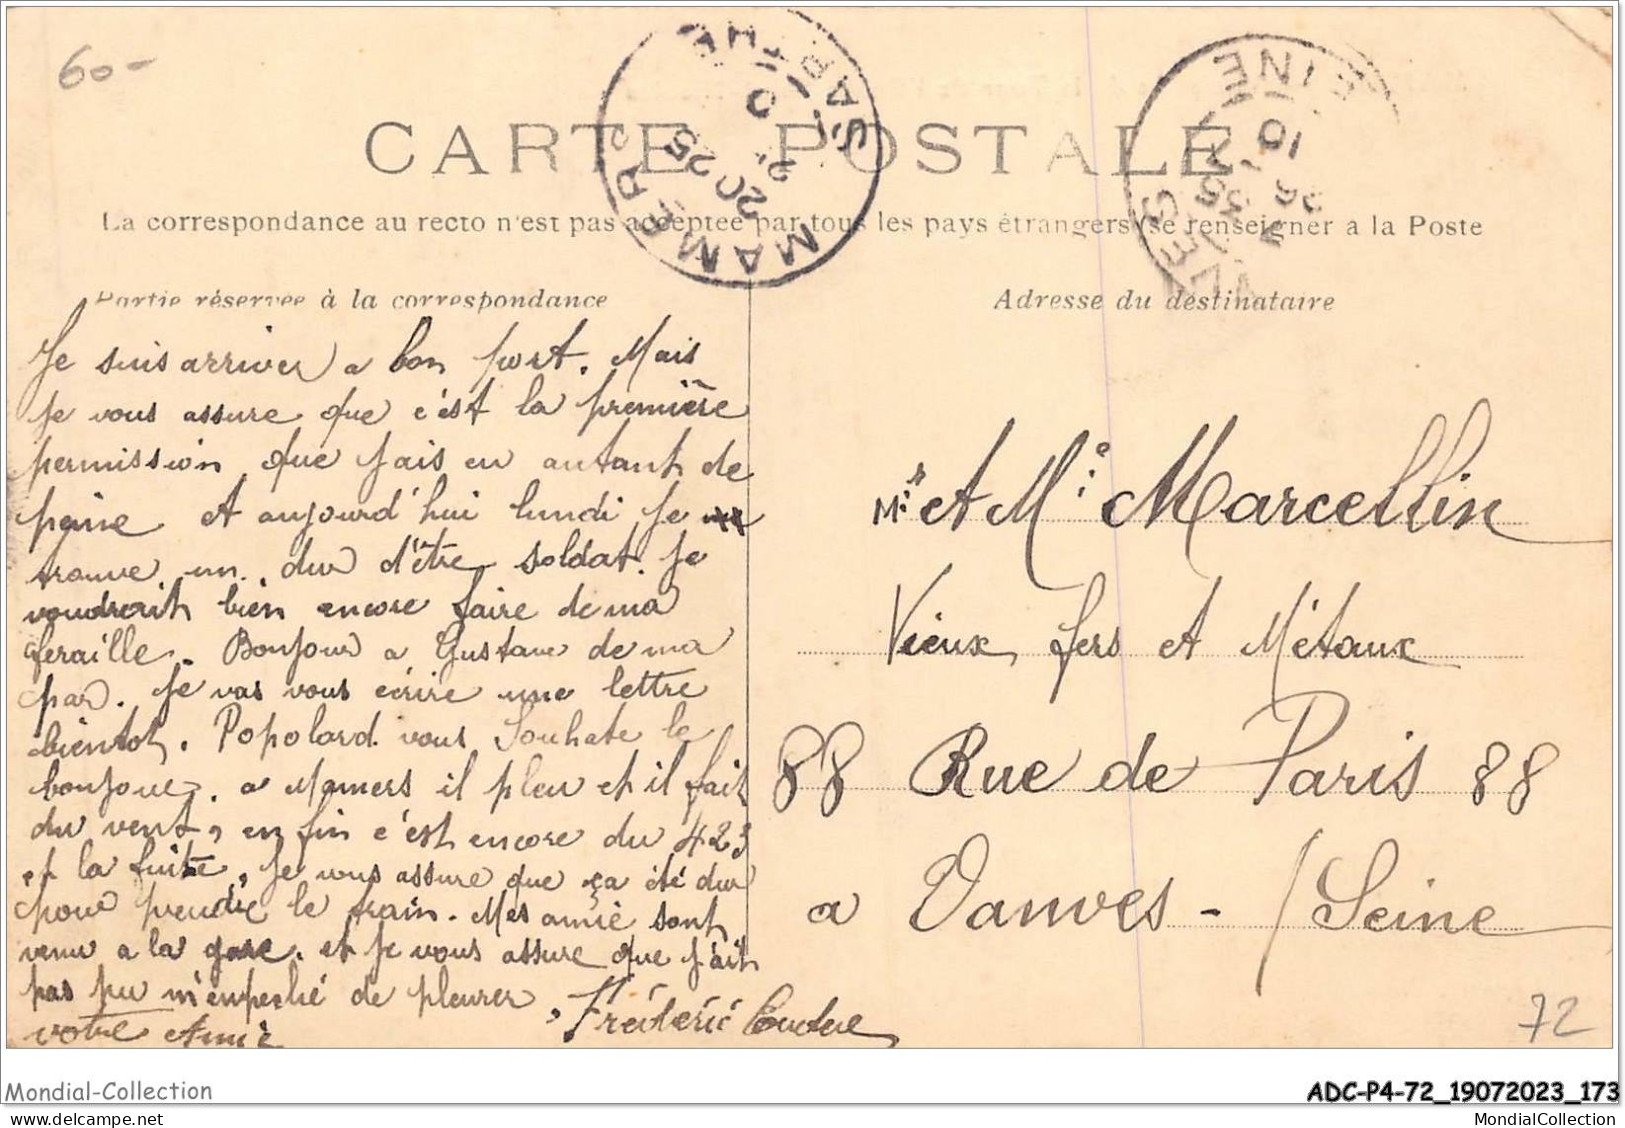 60-
CARTE POSTALE
MAMERS SARTHE
20 25
VANVES SEINE
10 35
La correspondance au recto n'est pas acceptée par tous les pays étrangers (se renseigner a la Poste
Partie réservee à la correspondance
Adresse du destinataire
Je suis arriver a bon port. Mais
je vous assure que c'est la première
permission que jais eu autant de
peine et aujourd'hui lundi je
trouve un dur d'être soldat. Je
voudrerait bien encore faire de ma
feraille. Bonjour a Gustave de ma
par. Je vas vous écrire une lettre
bientot. Popolard vous Souhate le
bonjour. a Mamers il pleu et il fait
du vent, en fin c'est encore du 423
et la fuite, Je vous assure que ça été dur
pour prendre le train. Mes amie sont
venu a la gare. et je vous assure que j'ait
pas pu m'empeché de pleurer.
votre Amie
Fréderic
Mr et Me Marcellin
Vieux fers et Métaux
88 Rue de Paris 88
a Vanves - /Seine
72
Mondial-Collection
ADC-P4-72_19072023_173
MondialCollection